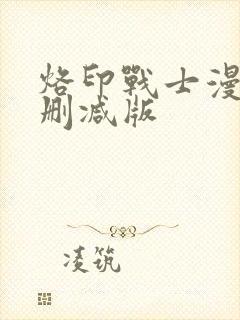 烙印戰士漫
刪减版
凌筑